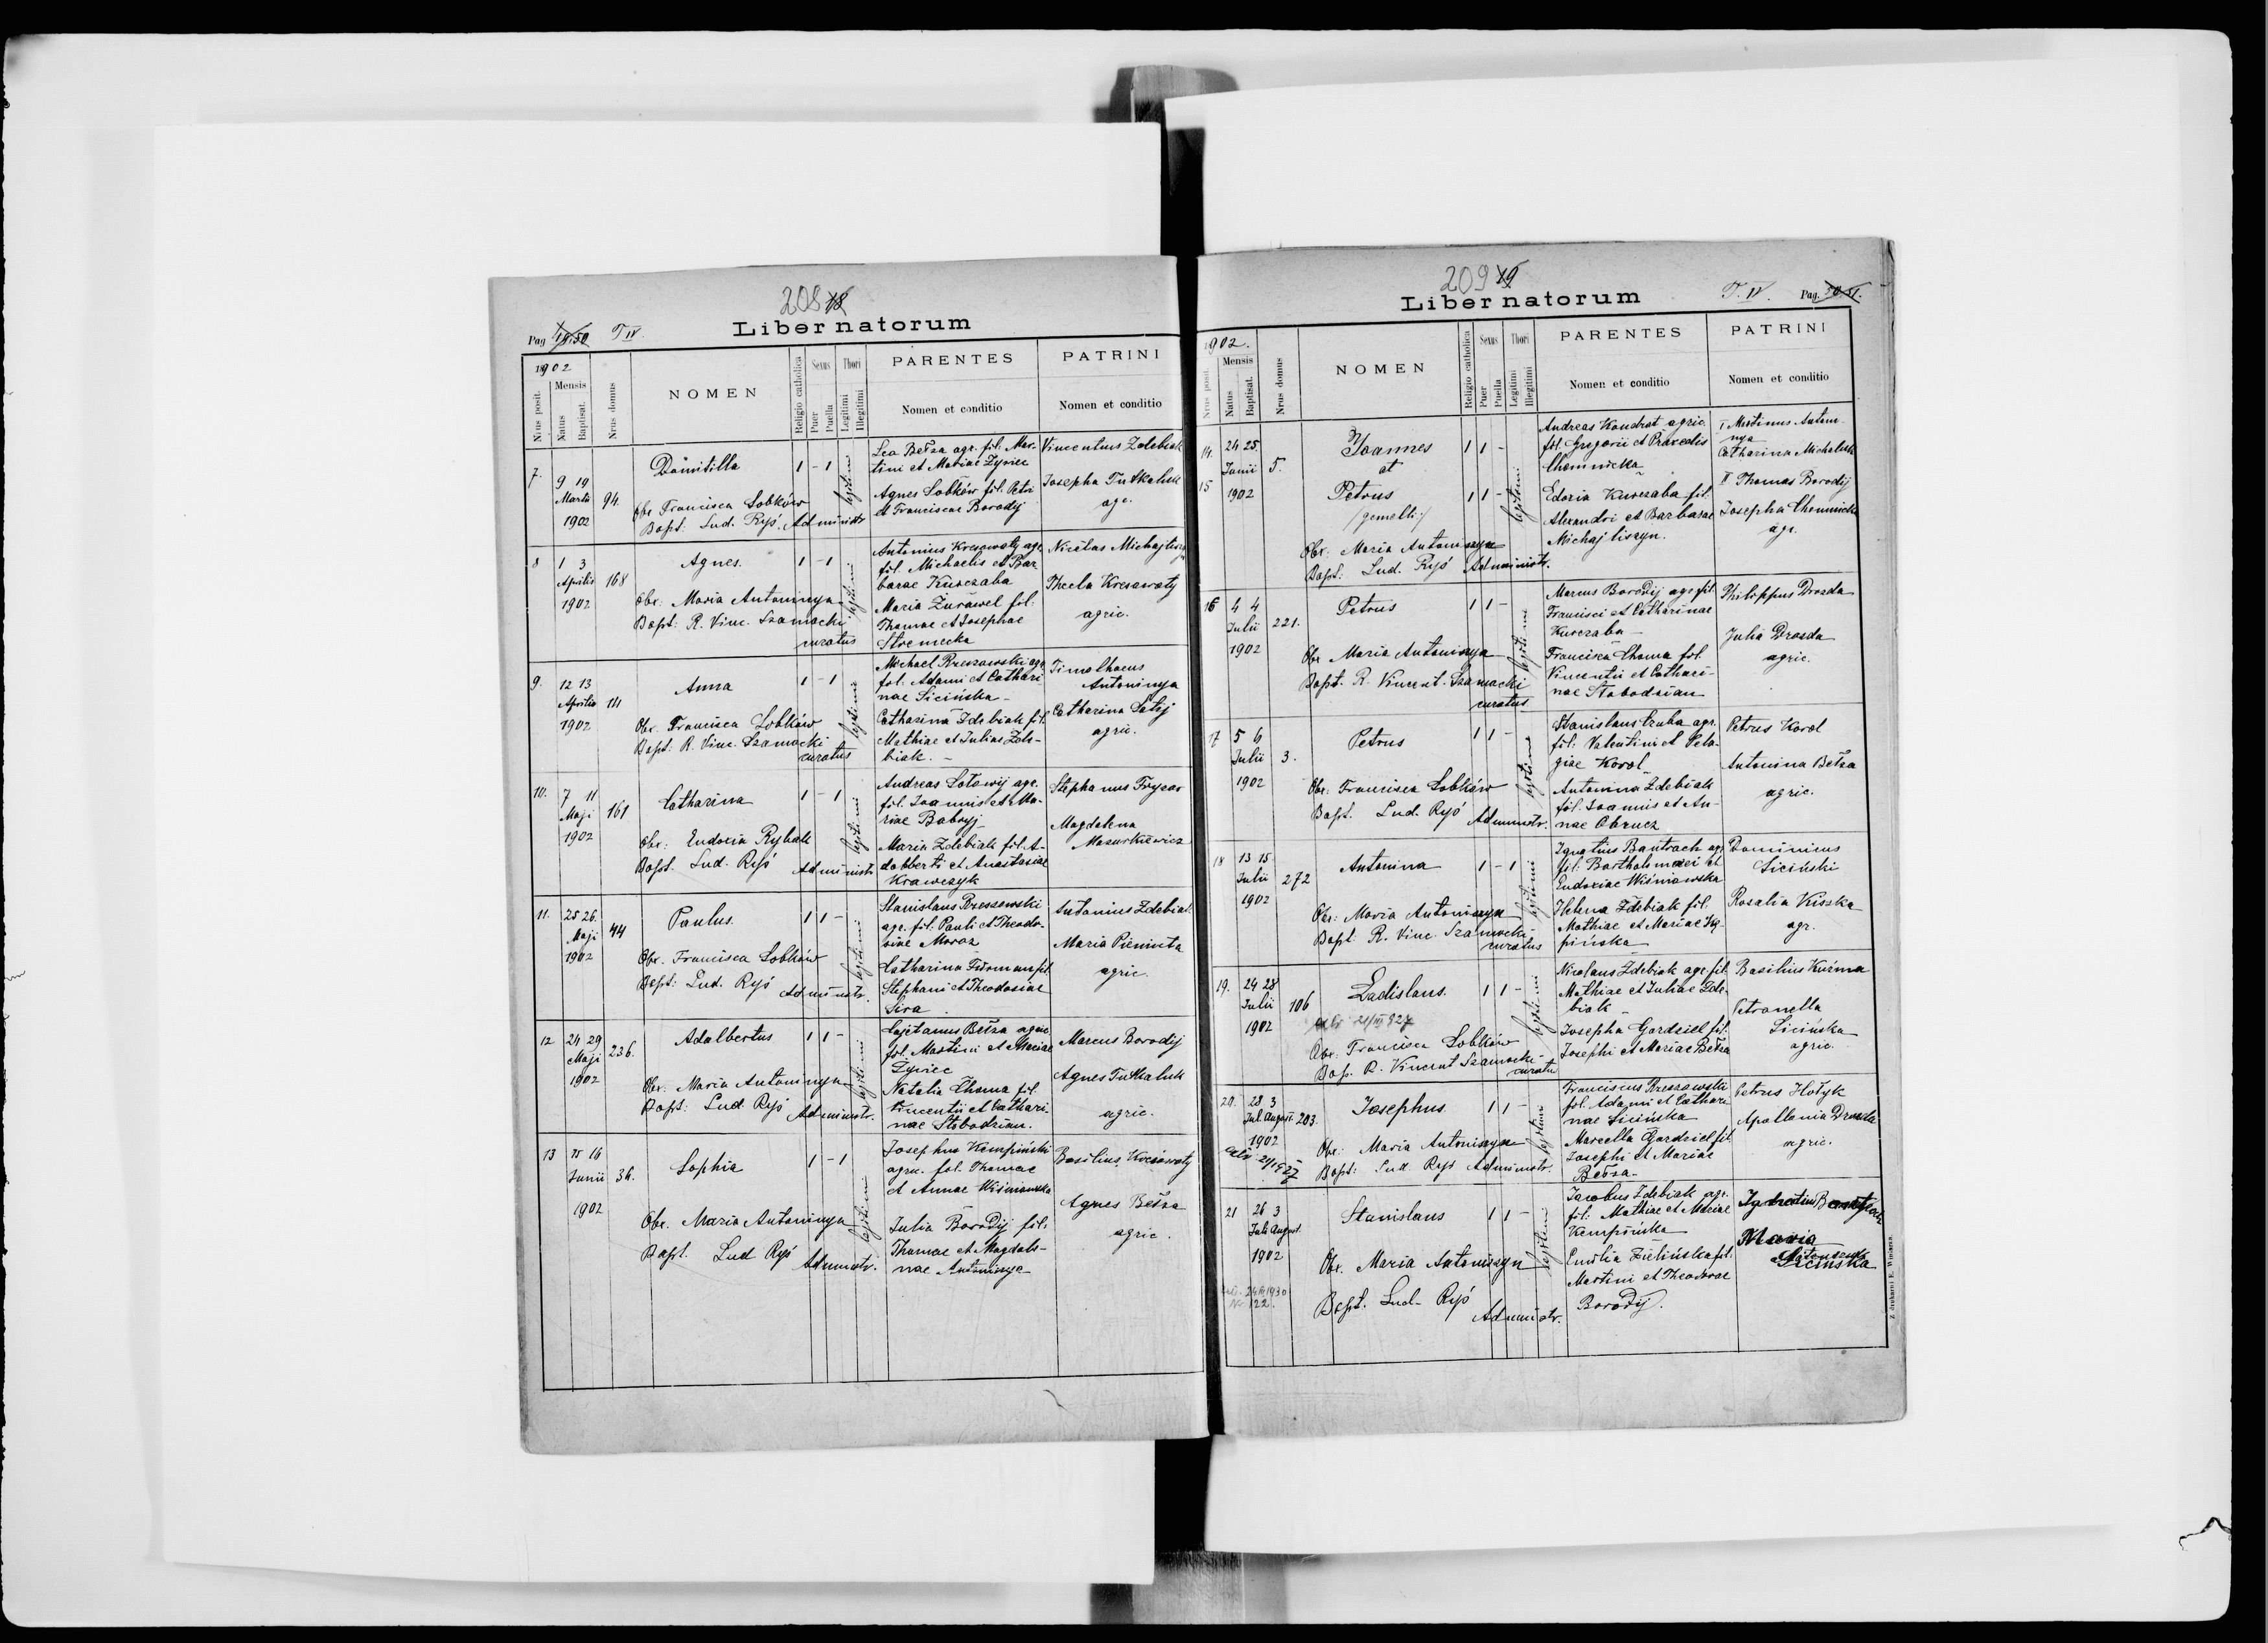 208 18
Liber natorum
Pag 49.50 T IV.
1902
Nrus posit.
Mensis
Natus
Baptisat.
Nrus domus
NOMEN
Religio catholica
Sexus
Puer
Puella
Thori
Legitimi
Illegitimi
PARENTES
Nomen et conditio
PATRINI
Nomen et conditio
7. 9 19 Martii 1902 94.
Domitilla 1 - 1
legitimi
Obs. Francisca Sobków
Bapt. Lud. Ryś. Administr
Leo Bełza agr. fil. Mar-
tini et Mariae Żywiec
Agnes Sobków fil. Petri
et Franciscae Borodij
Vincentius Zdebiak
Josepha Tutkaluk
agr.
8 1 3 Aprilis 1902 168
Agnes. 1 - 1
legitimi
Obs. Maria Antoninya
Bapt: R. Vinc. Szamocki
curatus
Antonius Kresowaty agr.
fil. Michaelis et Bar
barae Kurczaba
Maria Żuráwel fil.
Thomae et Josephae
Stremecka
Nicetas Michajliszyn
Thecla Kresowaty
agric.
9. 12 13 Aprilis 1902 111
Anna 1 - 1
legitimi
Obs. Francisca Sobków
Bapt. R. Vinc. Szamocki
curatus
Michael Rzeszowski agr.
fil. Adami et Cathari
nae Sicińska -
Catharina Zdebiak fil.
Mathiae et Julias Zde-
biak. -
Timotheus
Antoninya
Catharina
agric.
10. 7 11 Maji 1902 161
Catharina 1 - 1
legitimi
Obs: Eudoxia Rybak
Bapt. Lud. Ryś Administr
Andreas Sotowij agr.
fil. Joannis et Ma-
riae Babryj
Maria Zdebiak fil. A-
dalberti et Anastasiae
Krawczyk
Stephanus Frycar
Magdalena
Mazurkiewicz
11. 25 26. Maji 1902 44
Paulus. 1 1 -
legitimi
Obs. Francisca Sobków
Bapt: Lud. Ryś Administr.
Stanislaus Rzeszowski
agr. fil. Pauli et Theodo-
siae Moroz
Catharina Furman fil.
Stephani et Theodosiae
Sira.
Antonius Zdebiak
Maria Pieniuta
agric.
12 24 29 Maji 1902 226.
Adalbertus 1 1 -
legitimi
Obs. Maria Antoninya
Bapt: Lud. Ryś Administr.
Cajetanus Bełza agric
fil. Martini et Mariae
Żywiec
Natalia Choma fil.
Vincentii et Cathari-
nae Słobodzian.
Marcus Borodij
Agnes Tutkaluk
agric.
13 15 16 Junii 1902 36.
Sophia 1 - 1
legitimi
Obs. Maria Antoninya
Bapt. Lud Ryś Administr.
Josephus Kempiński
agric. fil. Thomae
et Annae Wiśniowska
Julia Borodij fil.
Thomae et Magdale-
nae Antoninya
Basilius Kresowaty
Agnes Bełza
agric.
209 19
Liber natorum
T. IV. Pag. 50 51.
1902.
Nrus posit.
Mensis
Natus
Baptisat.
Nrus domus
NOMEN
Religio catholica
Sexus
Puer
Puella
Thori
Legitimi
Illegitimi
PARENTES
Nomen et conditio
PATRINI
Nomen et conditio
14. 24 25. Junii 5.
15 1902
Joannes 1 1 -
et
Petrus 1 1 -
/gemelli:/
legitimi
Obs: Maria Antoniszyn
Bapt: Lud. Ryś Administr.
Andreas Kondrat agric.
fil. Gregorii et Praxedis
Chominicka
Edoxia Kurczaba fil.
Alexandri et Barbarae
Michajliszyn.
I Martinus Antoni-
nya
Catharina Michaluk
II Thomas Borodij
Josepha Chominicka
agr.
16 4 4 Julii 1902 221.
Petrus 1 1 -
legitimi
Obs Maria Antoninya
Bapt. R. Vincent. Szamocki
curatus
Marcus Borodij agr. fil.
Francisci et Catharinae
Kurczaba -
Francisca Choma fil.
Vincentii et Cathari-
nae Słobodzian
Philippus Drozda
Julia Drozda
agric.
17 5 6 Julii 1902 3.
Petrus 1 1 -
legitimi
Obs. Francisca Sobków
Bapt. Lud. Ryś Administr.
Stanislaus Czuba agr.
fil: Valentini et Pela-
giae Korol
Antonina Zdebiak
fil. Joannis et An-
nae Obrucz
Petrus Korol
Antonina Bełza
agric.
18 13 15 Julii 1902 272
Antonina 1 - 1
legitimi
Obs: Maria Antoniszyn
Bapt. R. Vinc. Szamocki
curatus
Ignatius Bantrach agr.
fil. Bartholomaei et
Eudoxiae Wiśniowska
Helena Zdebiak fil.
Mathiae et Mariae Kę-
pińska
Dominicus
Siciński
Rosalia Kiszka
agr.
19. 24 28 Julii 1902 106
Ladislaus. 1 1 -
legitimi
Obs: Francisca Sobków
Bap. R. Vincent Szamocki
curatus
Nicolaus Zdebiak agr. fil.
Mathiae et Juliae Zde-
biak -
Josepha Gardziel fil.
Josephi et Mariae Bełza
Basilius Kuźma
Petronella
Sicińska
agric.
20. 28 3 Jul. August. 1902 203.
Josephus 1 1 -
legitimi
Obs: Maria Antoniszyn
Bapt: Lud Ryś Administr.
Franciscus Rzeszowski
fil. Adami et Cathari
nae Sicińska
Marcella Gardziel fil
Josephi et Mariae
Bełza -
Petrus Hołyk
Apollonia Drozda
agric.
21 26 3 Juli August. 1902
Stanislaus 1 1 -
legitimi
Obs. Maria Antoniszyn
Bapt. Lud. Ryś Administr.
Jacobus Zdebiak agr.
fil: Mathiae et Mariae
Kempińska
Emilia Zielińska fil.
Martini et Theodorae
Borodij.
Maria
Sicińska
24 III 1930
Nr 122.
Z drukarni E. Winiarza.